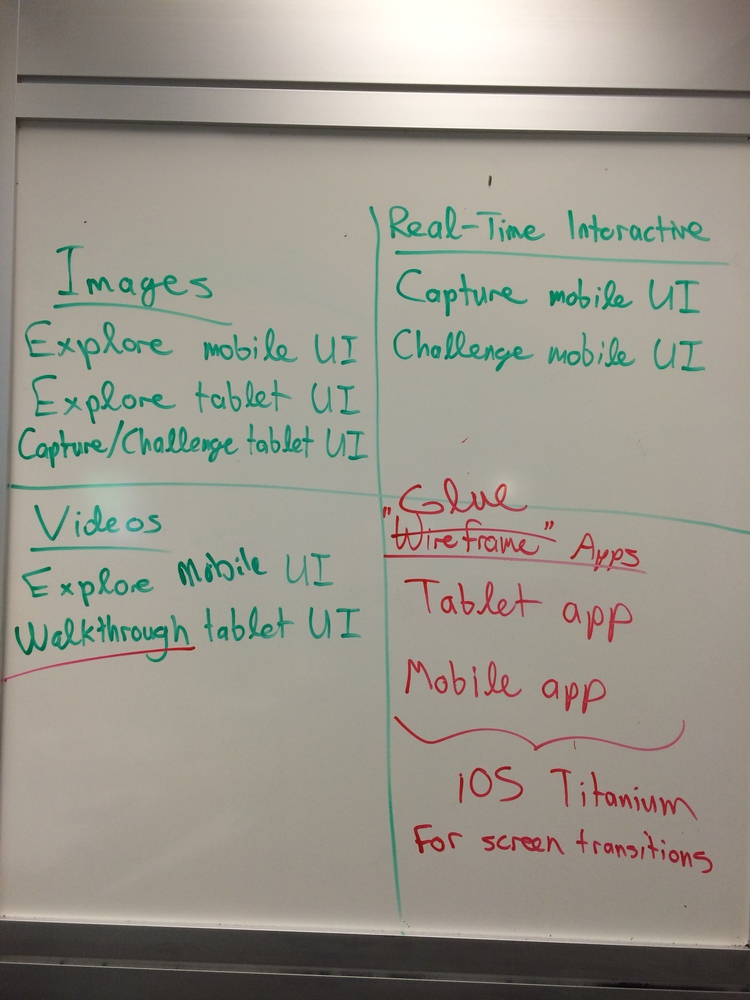 Images
Explore mobile UI
Explore tablet UI
Capture/Challenge tablet UI
Real-Time Interactive
Capture mobile UI
Challenge mobile UI
Videos
Explore Mobile UI
Walkthrough tablet UI
Glue
"Wireframe" Apps
Tablet app
Mobile app
iOS Titanium
For screen transitions